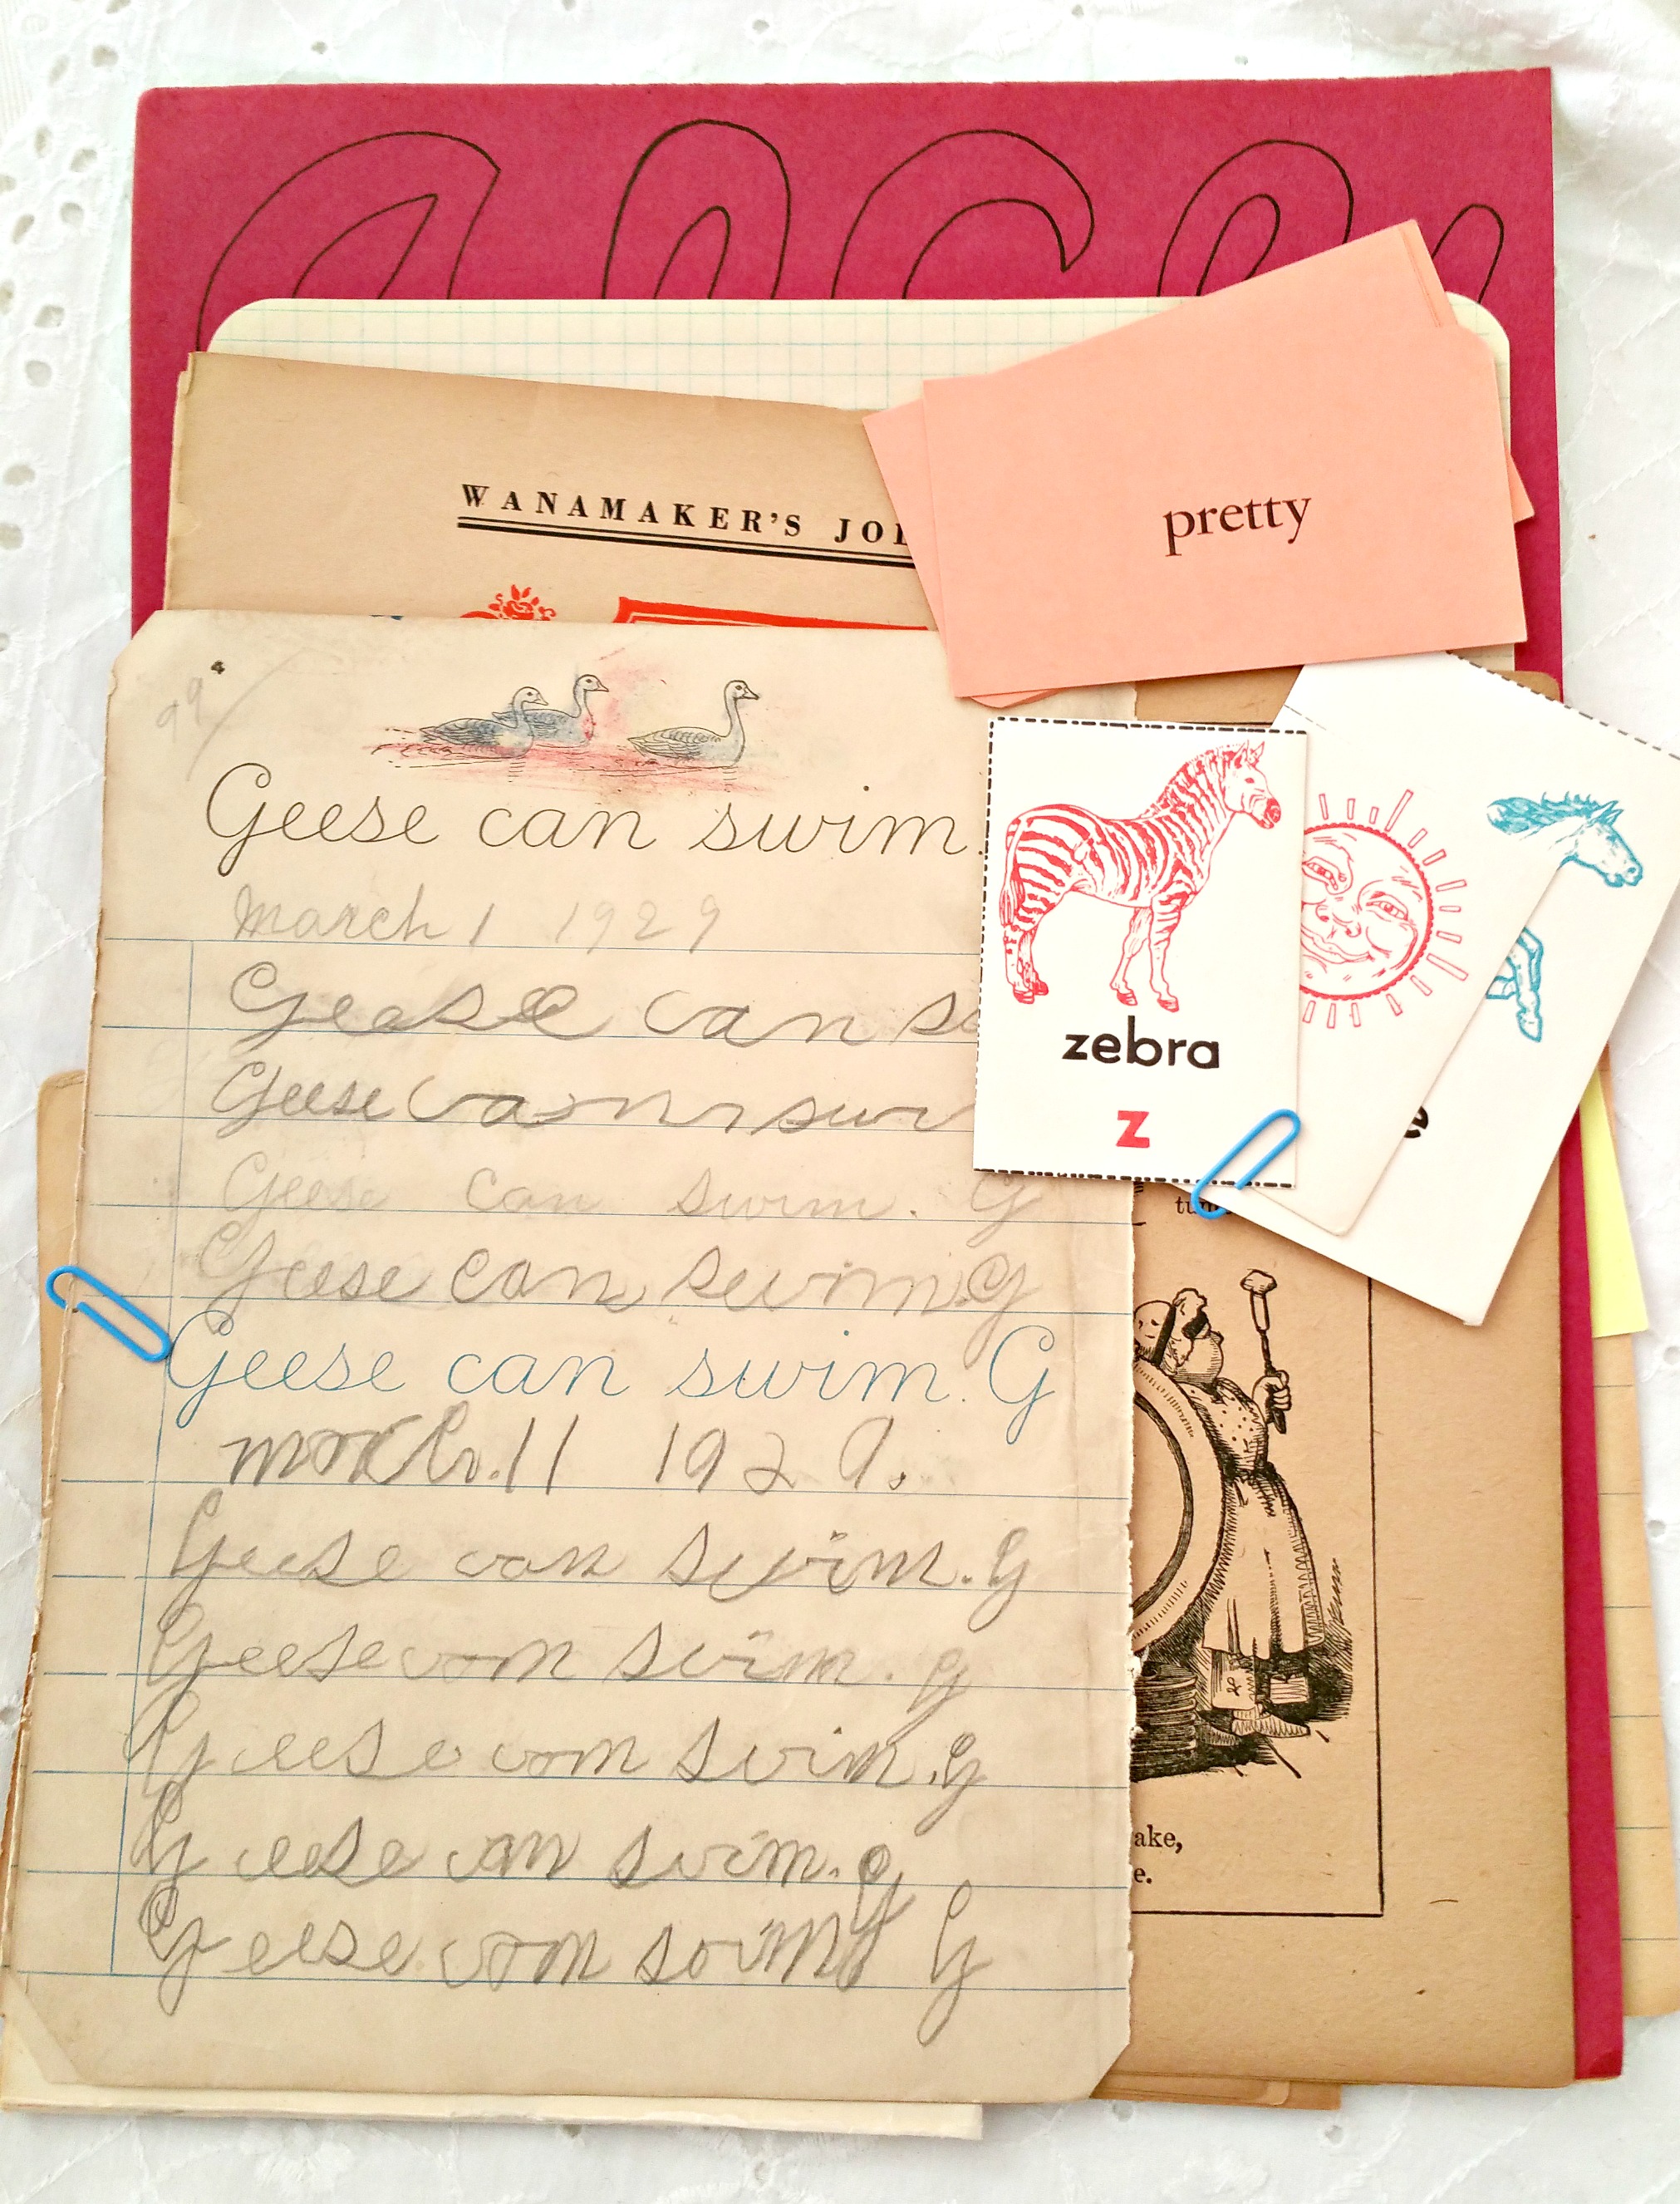 WANAMAKER'S JO
pretty
4
99
Geese can swim.
March 1 1929
Geese can s
Geese can swi
Geese can swim. G
Geese can swim. G
Geese can swim. G
March. 11 1929.
Geese can swim. G
Geese can swim. G
Geese can swim. G
Geese can swim. G
Geese can swim G
zebra
z
e
ake,
e.